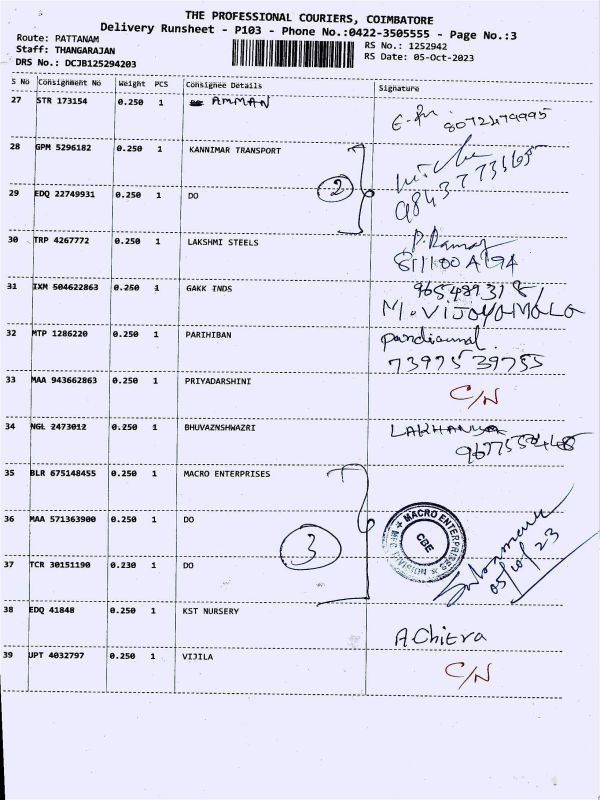 THE PROFESSIONAL COURIERS, COIMBATORE
Delivery Runsheet - P103 - Phone No.:0422-3505555 - Page No.:3
Route: PATTANAM
RS No.: 1252942
Staff: THANGARAJAN
RS Date: 05-Oct-2023
DRS No.: DCJB125294203
S No Consignment No Weight PCS Consignee Details Signature
27 STR 173154 0.250 1 AMMAN
8072479995
28 GPM 5296182 0.250 1 KANNIMAR TRANSPORT
2
9843773565
29 EDQ 22749931 0.250 1 DO
30 TRP 4267772 0.250 1 LAKSHMI STEELS
P. Ramaj
31 IXM 504622863 0.250 1 GAKK INDS
M. VIJAYAMALA
32 MTP 1286220 0.250 1 PARIHIBAN
73975 39755
33 MAA 943662863 0.250 1 PRIYADARSHINI C/N
34 NGL 2473012 0.250 1 BHUVAZNSHWAZRI
35 BLR 675148455 0.250 1 MACRO ENTERPRISES
36 MAA 571363900 0.250 1 DO
3
MACRO ENTERPRISES
CBE
05/10/23
37 TCR 30151190 0.230 1 DO
38 EDQ 41848 0.250 1 KST NURSERY A Chitra
39 UPT 4032797 0.250 1 VIJILA C/N